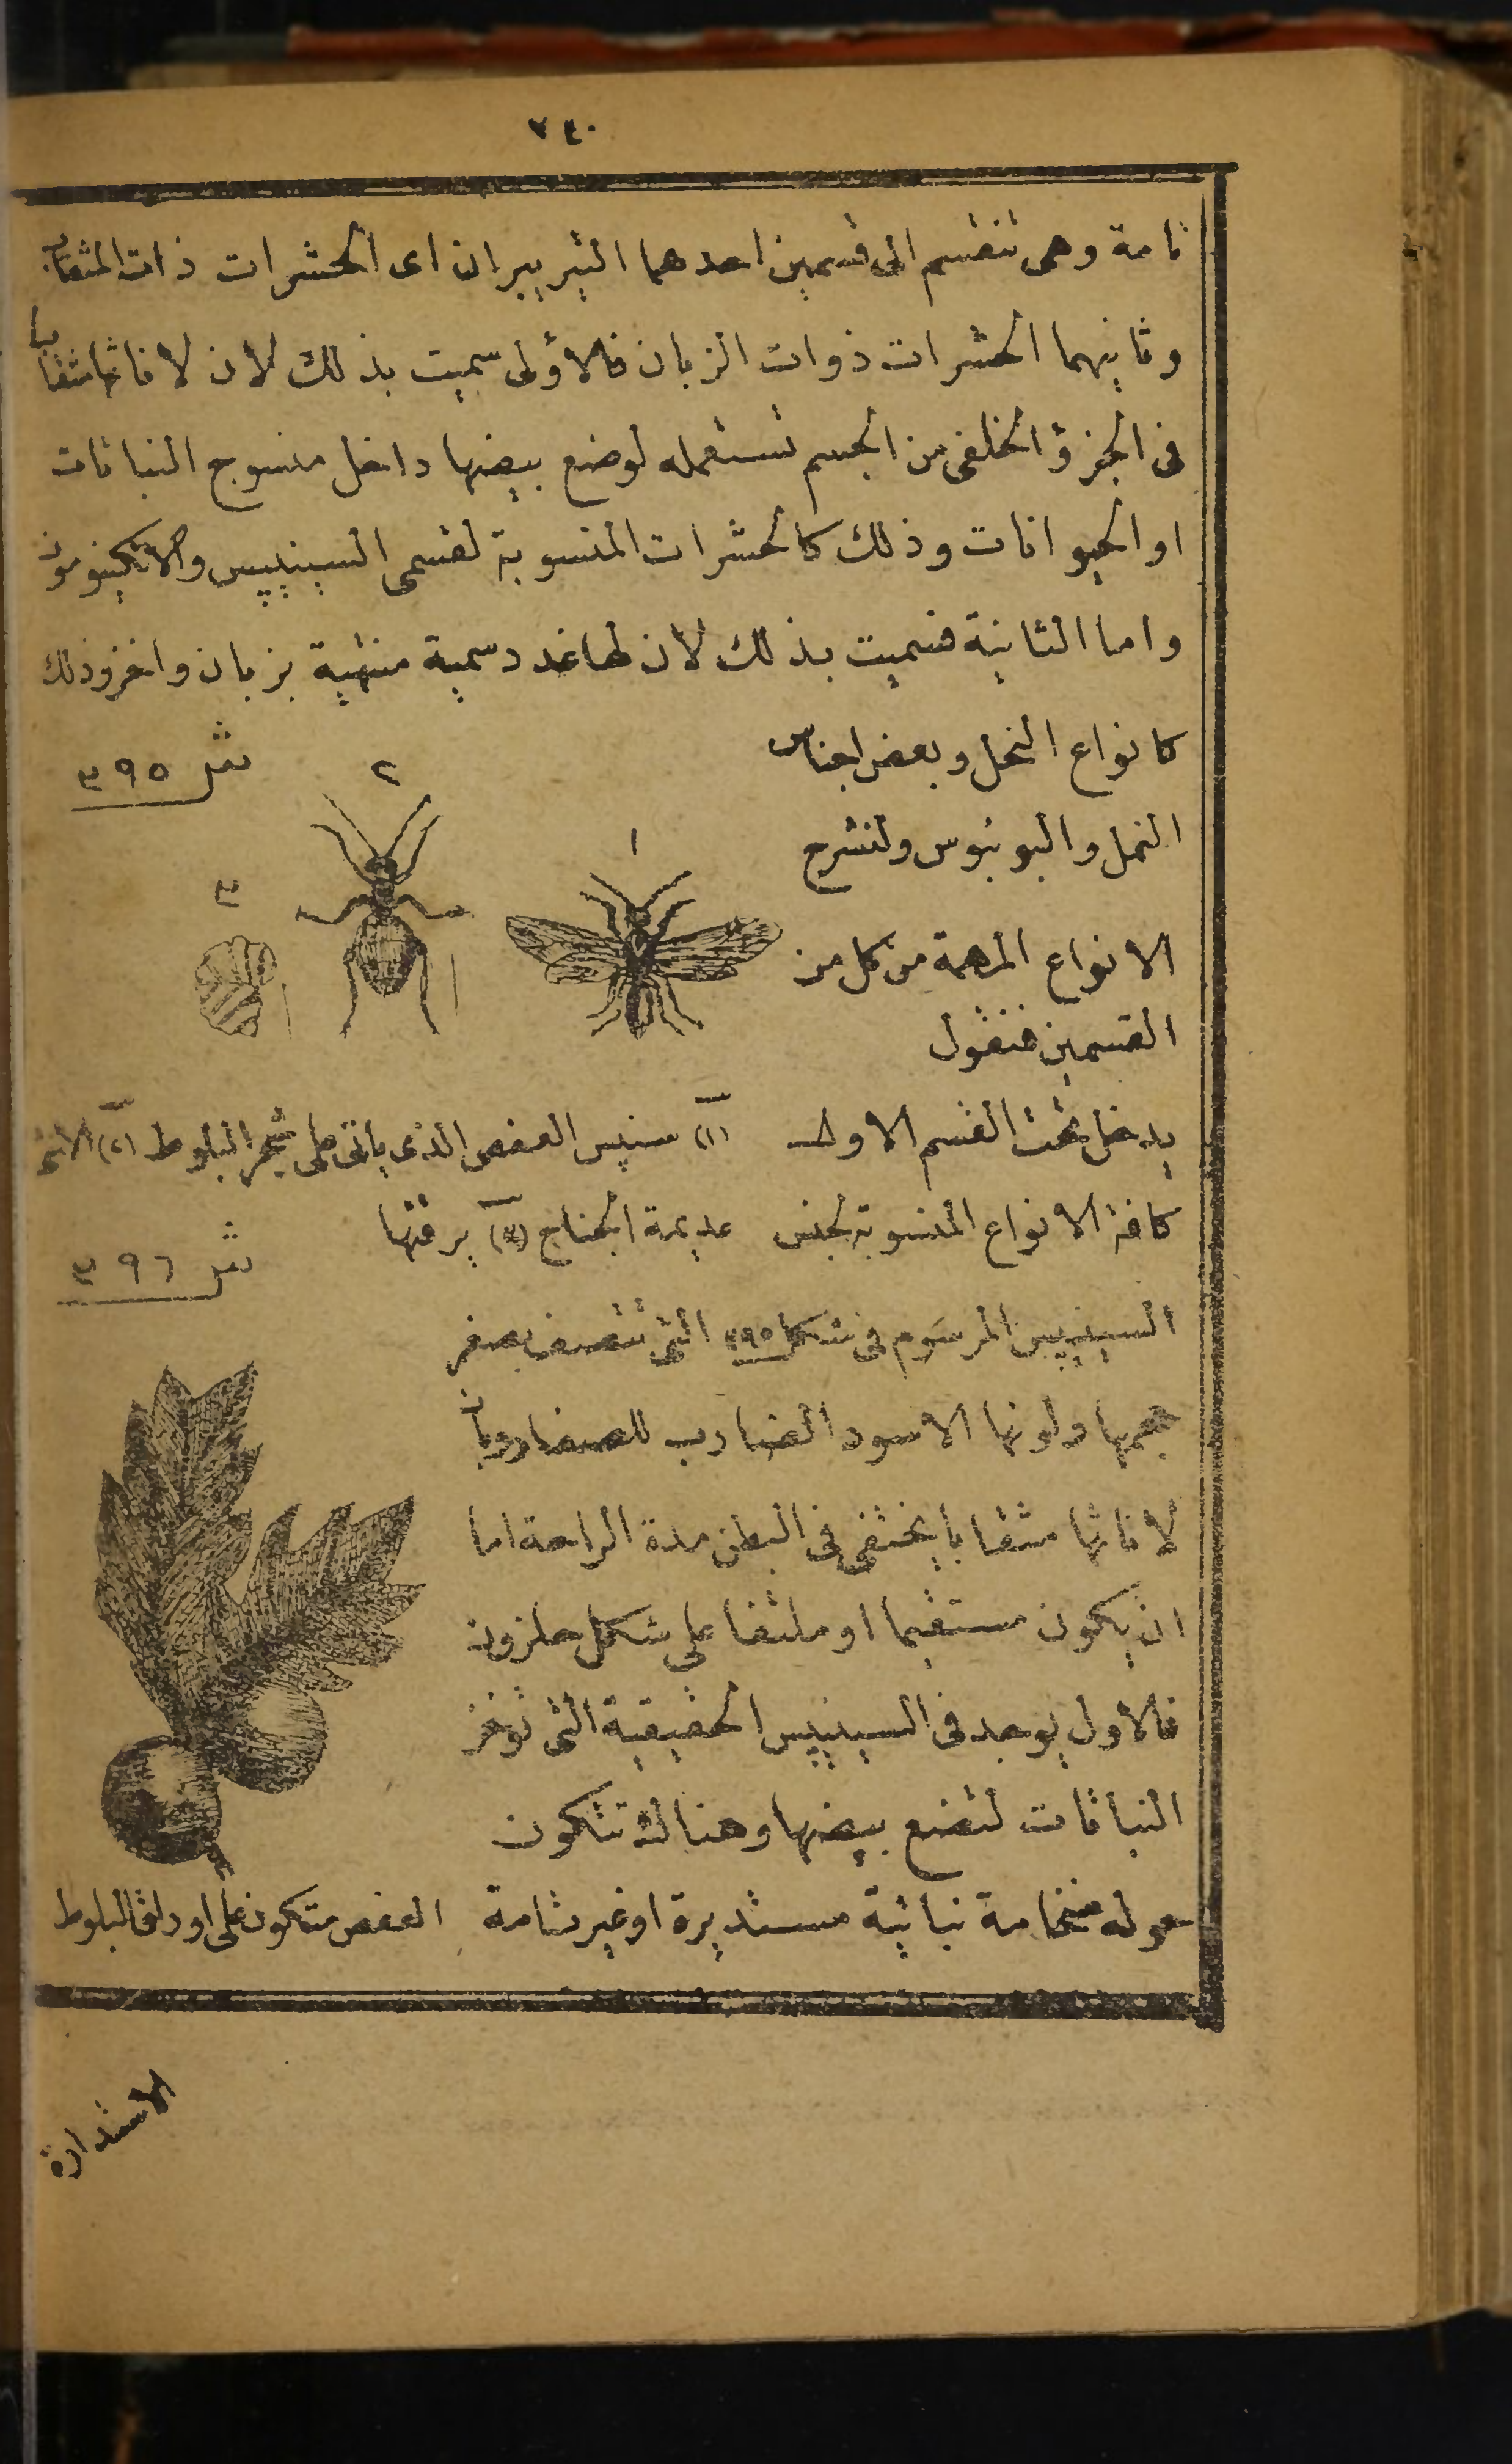 ٧٤٠
تامة وهى تنقسم الى قسمين احدهما التيريبران اى الحشرات ذات المثقاب
وثانيهما الحشرات ذوات الزبان فالاؤلى سميت بذلك لان لاناثها مثقابا
فى الجزؤ الخلفى من الجسم تستعمله لوضع بيضها داخل منسوج النباتات
او الحيوانات وذلك كالحشرات المنسوبة لقسمى السينيپس والاتكينومون
واما الثانية فسميت بذلك لان لها غدد سمية منتهية بزبان واخز وذلك
كانواع النحل وبعض اجناس
النمل والبونبوس ولنشرح
الانواع المهمة من كل من
القسمين فنقول
شر ٣٩٥
١
٢
٣
يدخل تحت القسم الاول
كافة الانواع المنسوبة لجنس
(١) سنپس العفص الذى ياتى على شجر البلوط (٢) الانثى
عديمة الجناح (٣) يرقتها
شر ٣٩٦
السينيپس المرسوم فى شكل ٣٩٥ التى تتصف بصغر
حجمها ولونها الاسود الضارب للصفار وبان
لاناثها مثقابا يختفى فى البطن مدة الراحة اما
ان يكون مستقيما او ملتفا على شكل حلزون
فالاول يوجد فى السينيپس الحقيقية التى توخز
النباتات لتضع بيضها وهنالك تتكون
حوله ضخامة نباتية مستديرة او غير تامة
العفص متكون على اوراق البلوط
الاستدارة